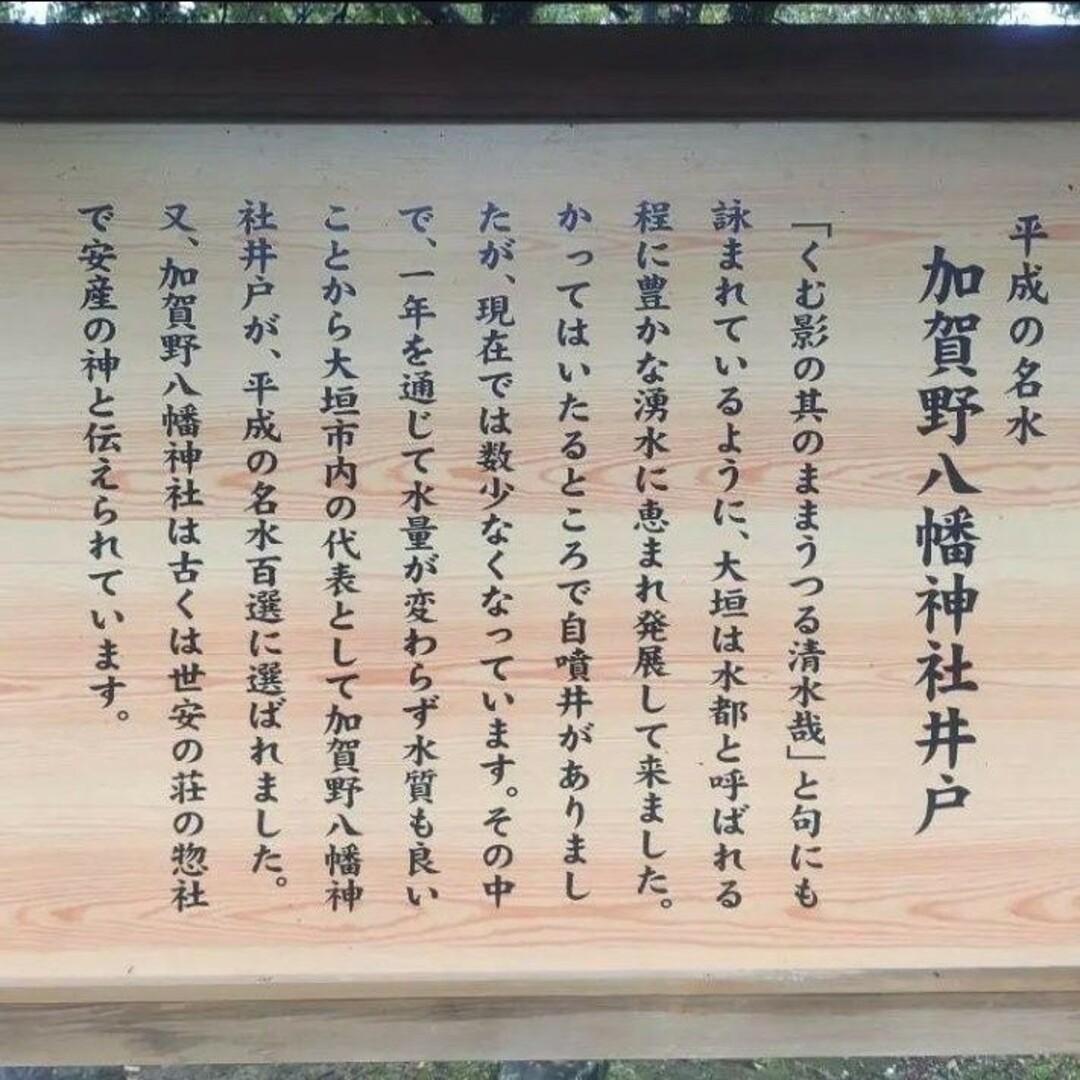 平成の名水
加賀野八幡神社井戸
「くむ影の其のままうつる清水哉」と句にも
詠まれているように、大垣は水都と呼ばれる
程に豊かな湧水に恵まれ発展して来ました。
かってはいたるところで自噴井がありまし
たが、現在では数少なくなっています。その中
で、一年を通じて水量が変わらず水質も良い
ことから大垣市内の代表として加賀野八幡神
社井戸が、平成の名水百選に選ばれました。
又、加賀野八幡神社は古くは世安の荘の惣社
で安産の神と伝えられています。